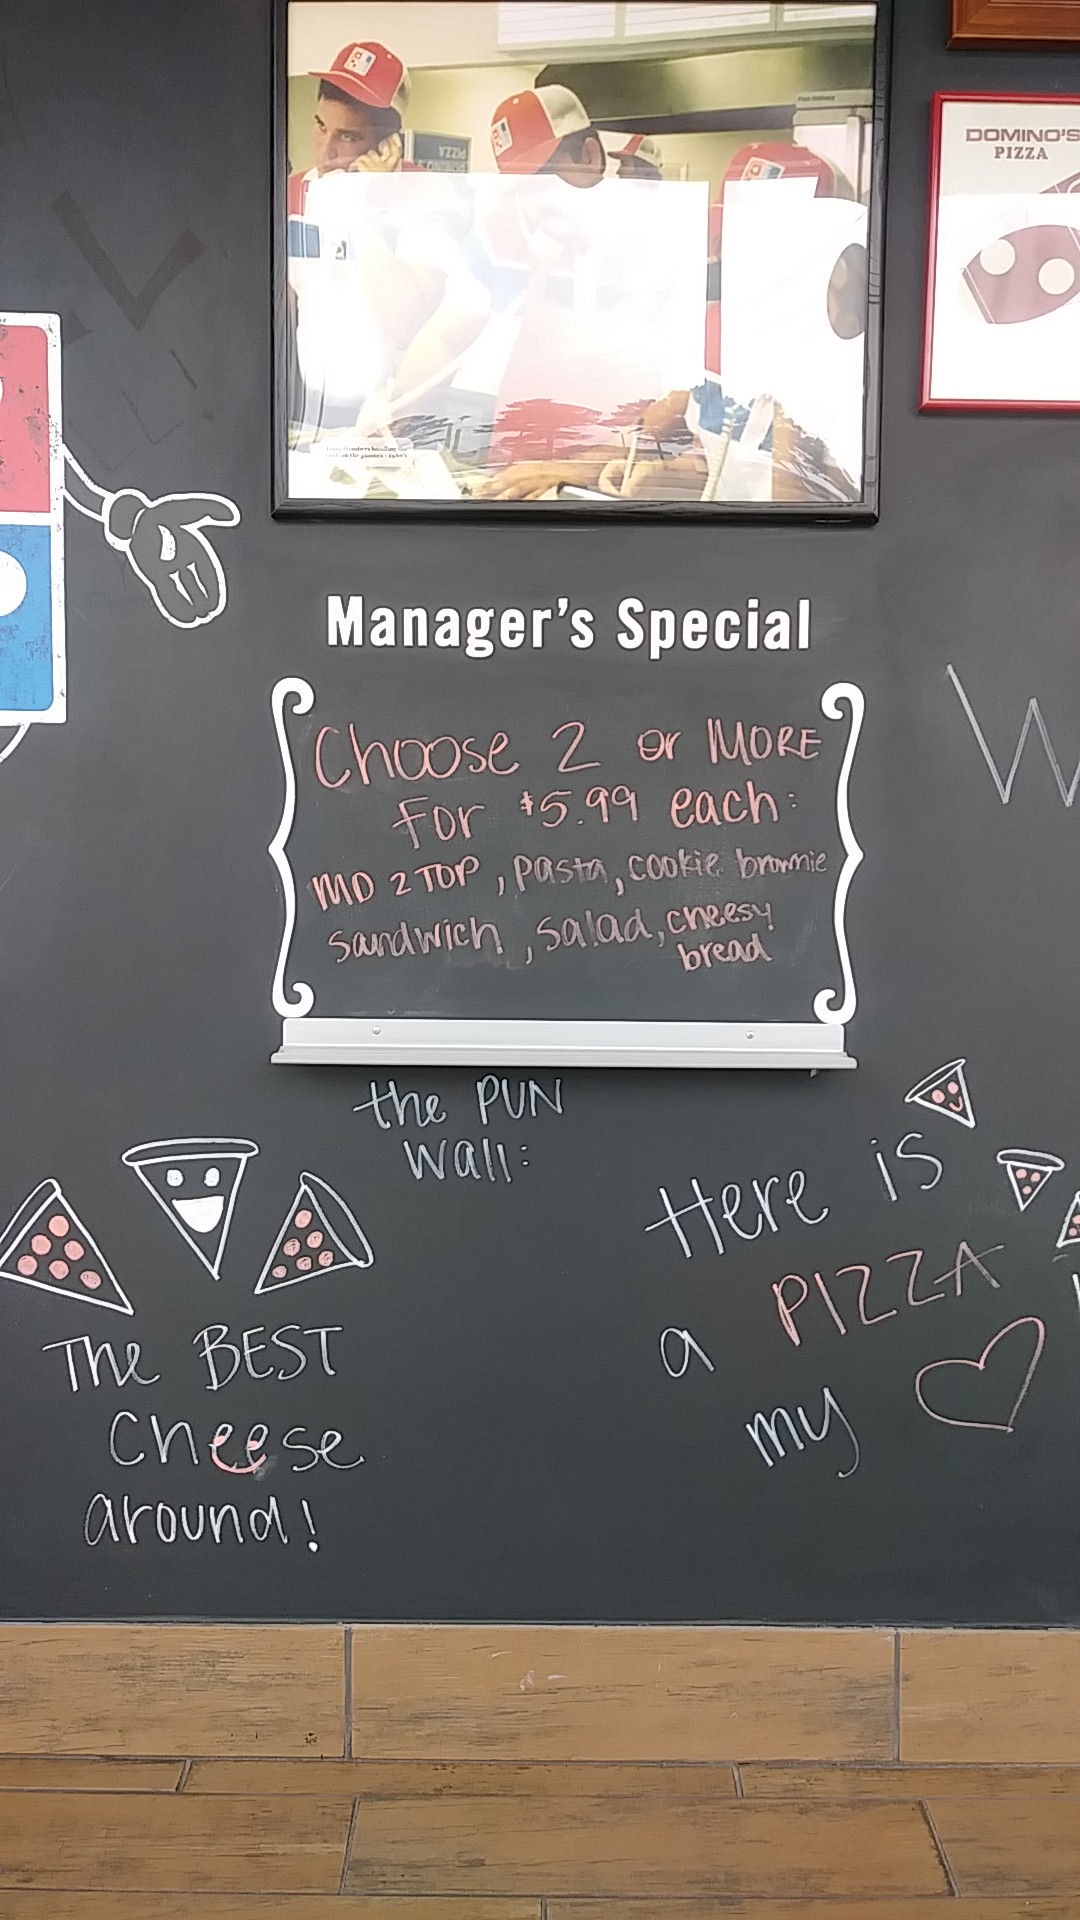 DOMINO'S
PIZZA
Manager's Special
Choose 2 or MORE
For $5.99 each:
MD 2 TOP, pasta, cookie brownie
sandwich, salad, cheesy
bread
the PUN
Wall:
The BEST
cheese
around!
Here is
a PIZZA
my
W